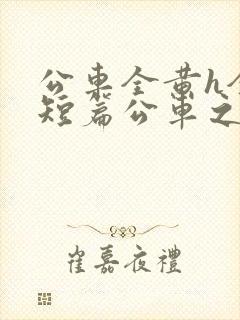 公車全黃h全
短篇公車之
崔嘉夜禮